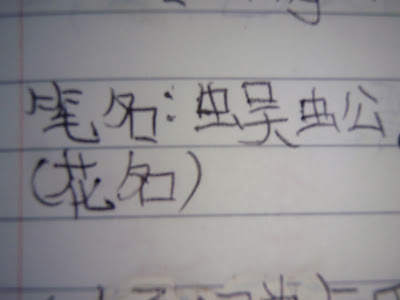 笔名:蜈蚣
(花名)